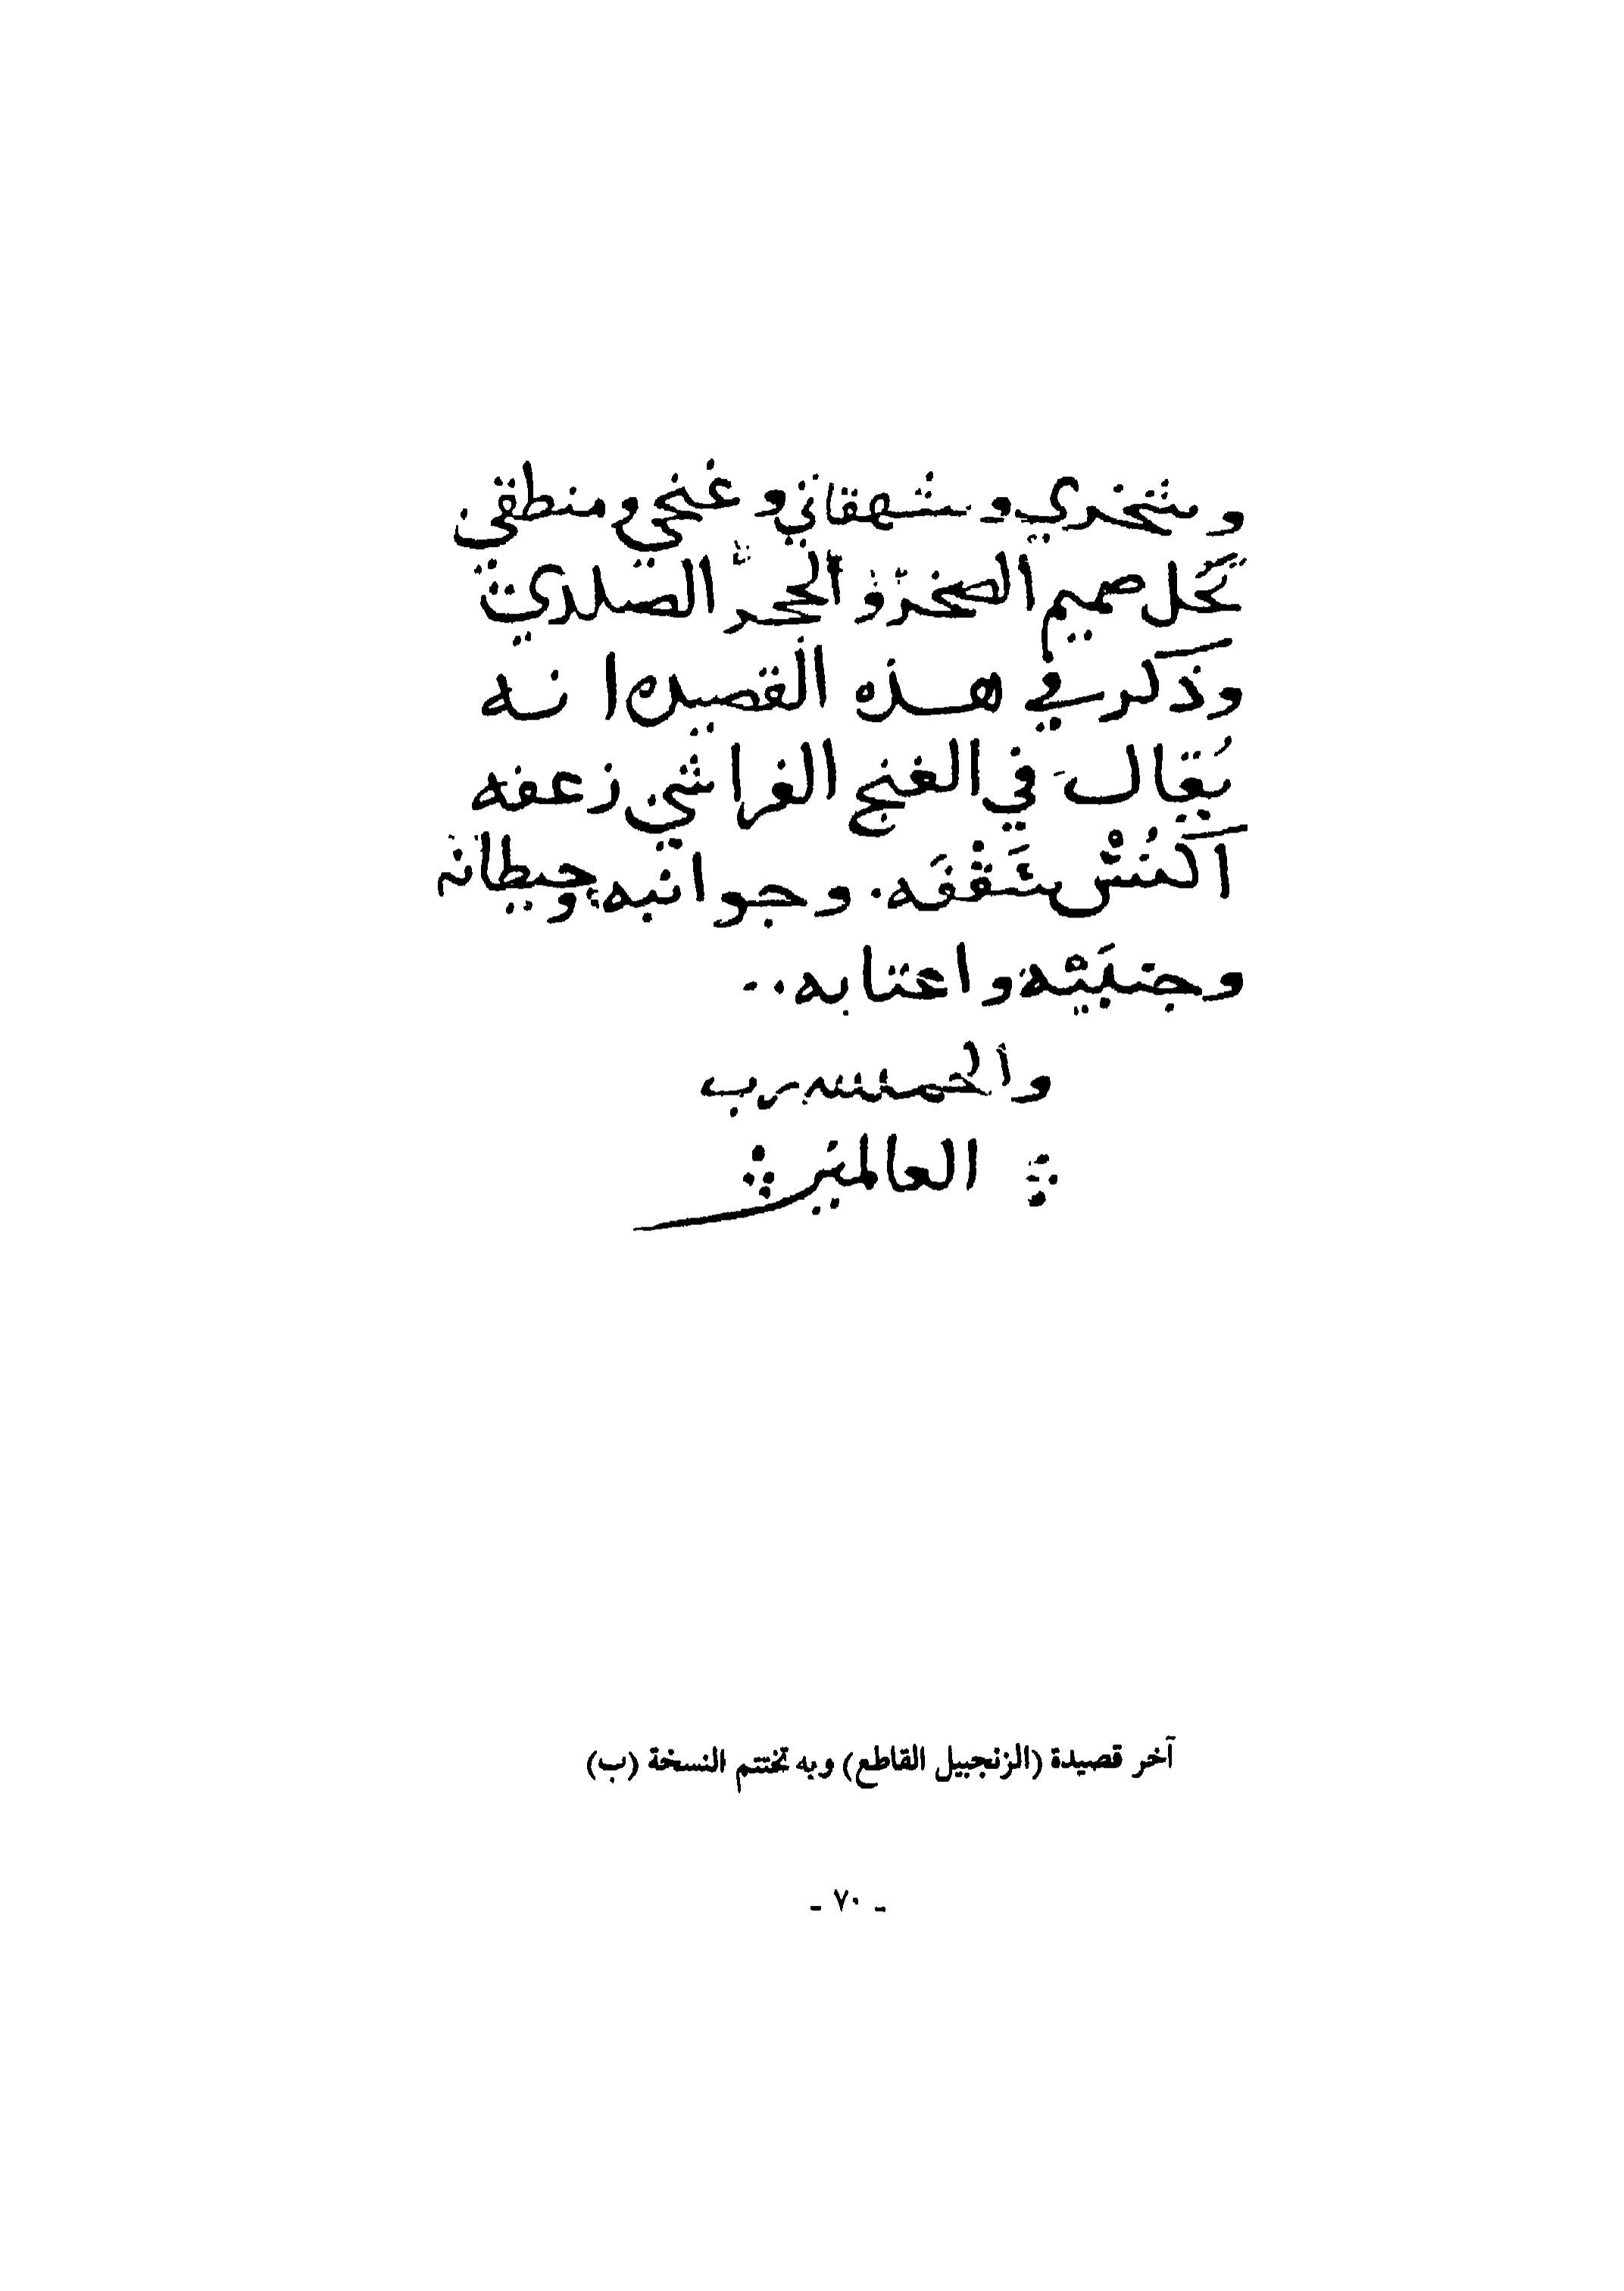 وشخري وشهقاتي وغنجي ومنطقي
يحل صميم الصخر والحجر الصلدي
وذكر في هذه القصيده انه
يُقال في الغنج الفراشي زعفه
اكنُسْ سَقْفَه. وجوانبه وحيطانه
وجنبَيْه واعتابه..
والحمد لله رب
العالمين
آخر قصيدة (الزنجبيل القاطع) وبه تختتم النسخة (ب)
ـ ٧٠ ـ